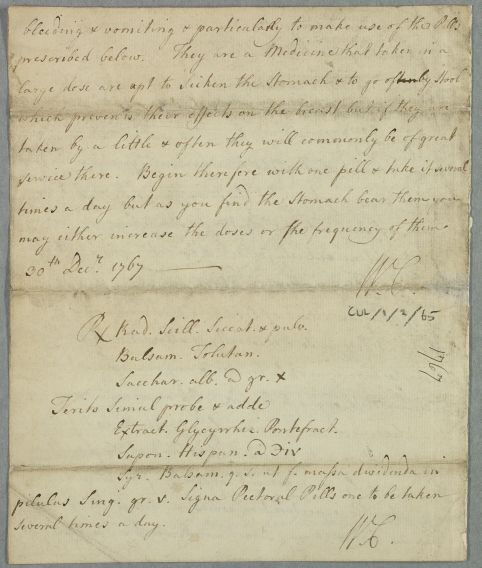 bleeding & vomiting & particularly to make use of the Pills
prescribed below. They are a Medicine that taken in a
large dose are apt to Sicken the Stomach & to go often by Stool
which prevents their effects on the breast but if they are
taken by a little & often they will commonly be of great
service there. Begin therefore with one pill & take it several
times a day but as you find the Stomach bear them you
may either increase the doses or the frequency of them.
30th Decr. 1767
W.C.
CUL/1/2/65
1767
℞ Rad. Scill. Siccat. & pulv.
Balsam. Tolutan.
Sacchar. alb. a gr. x
Terito Simul probe & adde
Extract. Glycyrrhiz. Pontefract.
Sapon. Hispan. a ʒiv
Syr. Balsam. q. s. ut f. massa dividenda in
pilulas Sing. gr. v. Signa Pectoral Pills one to be taken
several times a day.
W.C.